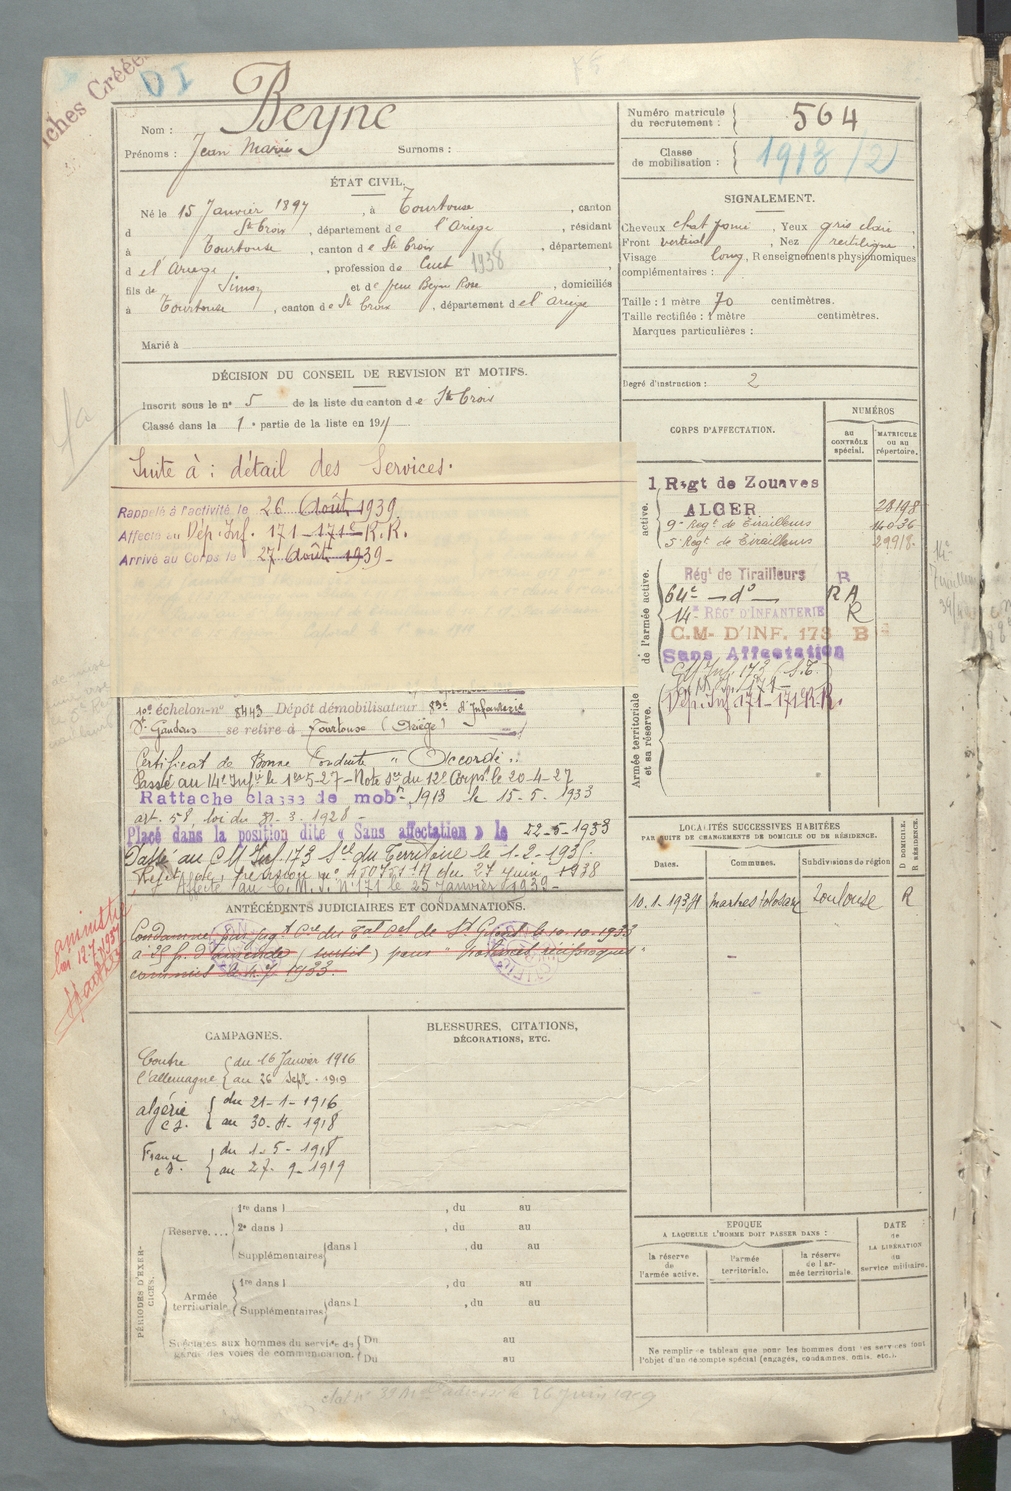 DI
Nom : Beyne
Prénoms : Jean Marie Surnoms :
Numéro matricule du recrutement : 564
Classe de mobilisation : 1918/2
ÉTAT CIVIL.
Né le 15 Janvier 1897, à Tourtouse, canton
d St Croix, département de l'Ariège, résidant
à Tourtouse, canton de St Croix, département
d el'Ariège, profession de Cult 1938
fils de Simon et de feue Beyne Rose, domiciliés
à Tourtouse, canton de St Croix, département d el'Ariège
Marié à
SIGNALEMENT.
Cheveux chat foncé, Yeux gris clair,
Front vertical, Nez rectiligne,
Visage long, Renseignements physiognomiques
complémentaires :
Taille : 1 mètre 70 centimètres.
Taille rectifiée : 1 mètre centimètres.
Marques particulières :
Degré d'instruction : 2
DÉCISION DU CONSEIL DE REVISION ET MOTIFS.
Inscrit sous le n° 5 de la liste du canton de St Croix
Classé dans la 1e partie de la liste en 191
Suite à : détail des Services.
Rappelé à l'activité le 26 Août 1939
Affecté au Dép. Inf. 171 - 171e R.R.
Arrivé au Corps le 27 Août 1939 -
10e échelon-n° 8443 Dépôt démobilisateur 83e d'Infanterie
St Gaudens se retire à Tourtouse (Ariège)
Certificat de Bonne Conduite "Accordé"
Passé au 14e Inf. le 1er 5-27 - Note du 12e Corps le 20-4-27
Rattaché classe de mobon 1913 le 15-5-1933
art. 58, loi du 31-3-1928 -
Placé dans la position dite « Sans affectation » le 22-5-1933
Passé au C M Inf. 173 du Territoire le 1-2-193
du 27 Juin 1938
Affecté au C.M.I. N°171 le 25 Janvier 1939 -
CORPS D'AFFECTATION.
NUMÉROS
au CONTRÔLE spécial.
MATRICULE ou au répertoire.
active.
1 Regt de Zouaves
ALGER 28198
9e Regt de Tirailleurs 14036
5e Regt de Tirailleurs 29918
de l'armée active.
Régt de Tirailleurs R
64e — do — RA
14e REGt D'INFANTERIE R
C.M- D'INF. 173 B
Sans Affectation
Armée territoriale et sa réserve.
CM Inf. 173 (S.T.)
Dép. Inf 171 - 171e R.R.
LOCALITÉS SUCCESSIVES HABITÉES
PAR SUITE DE CHANGEMENTS DE DOMICILE OU DE RÉSIDENCE.
Dates. Communes. Subdivisions de région D DOMICILE. R RÉSIDENCE.
10.1.1934 Martres tolosane Toulouse R
ANTÉCÉDENTS JUDICIAIRES ET CONDAMNATIONS.
Condamné par jugt Cel du Tal Cel de St Girons le 10-10-1933
à 25 f. d'amende (sursis) pour "violences réciproques"
commises le 4.7.1933.
amnistié
loi 12-7-1937
CAMPAGNES.
Contre l'allemagne { du 16 Janvier 1916
au 26 Sept. 1919
algérie { du 21-1-1916
au 30-4-1918
France { du 1-5-1918
au 27-9-1919
BLESSURES, CITATIONS,
DÉCORATIONS, ETC.
PÉRIODES D'EXERCICES.
Réserve.... 1re dans l , du au
2e dans l , du au
Supplémentaires dans l , du au
Armée territoriale 1re dans l , du au
Supplémentaires dans l , du au
Spéciales aux hommes du service de garde des voies de communication. Du au
Du au
EPOQUE
A LAQUELLE L'HOMME DOIT PASSER DANS :
la réserve de l'armée active.
l'armée territoriale.
la réserve de l'armée territoriale.
DATE de LA LIBÉRATION du service militaire.
Ne remplir ce tableau que pour les hommes dont les services font
l'objet d'un décompte spécial (engagés, condamnés, omis, etc.).